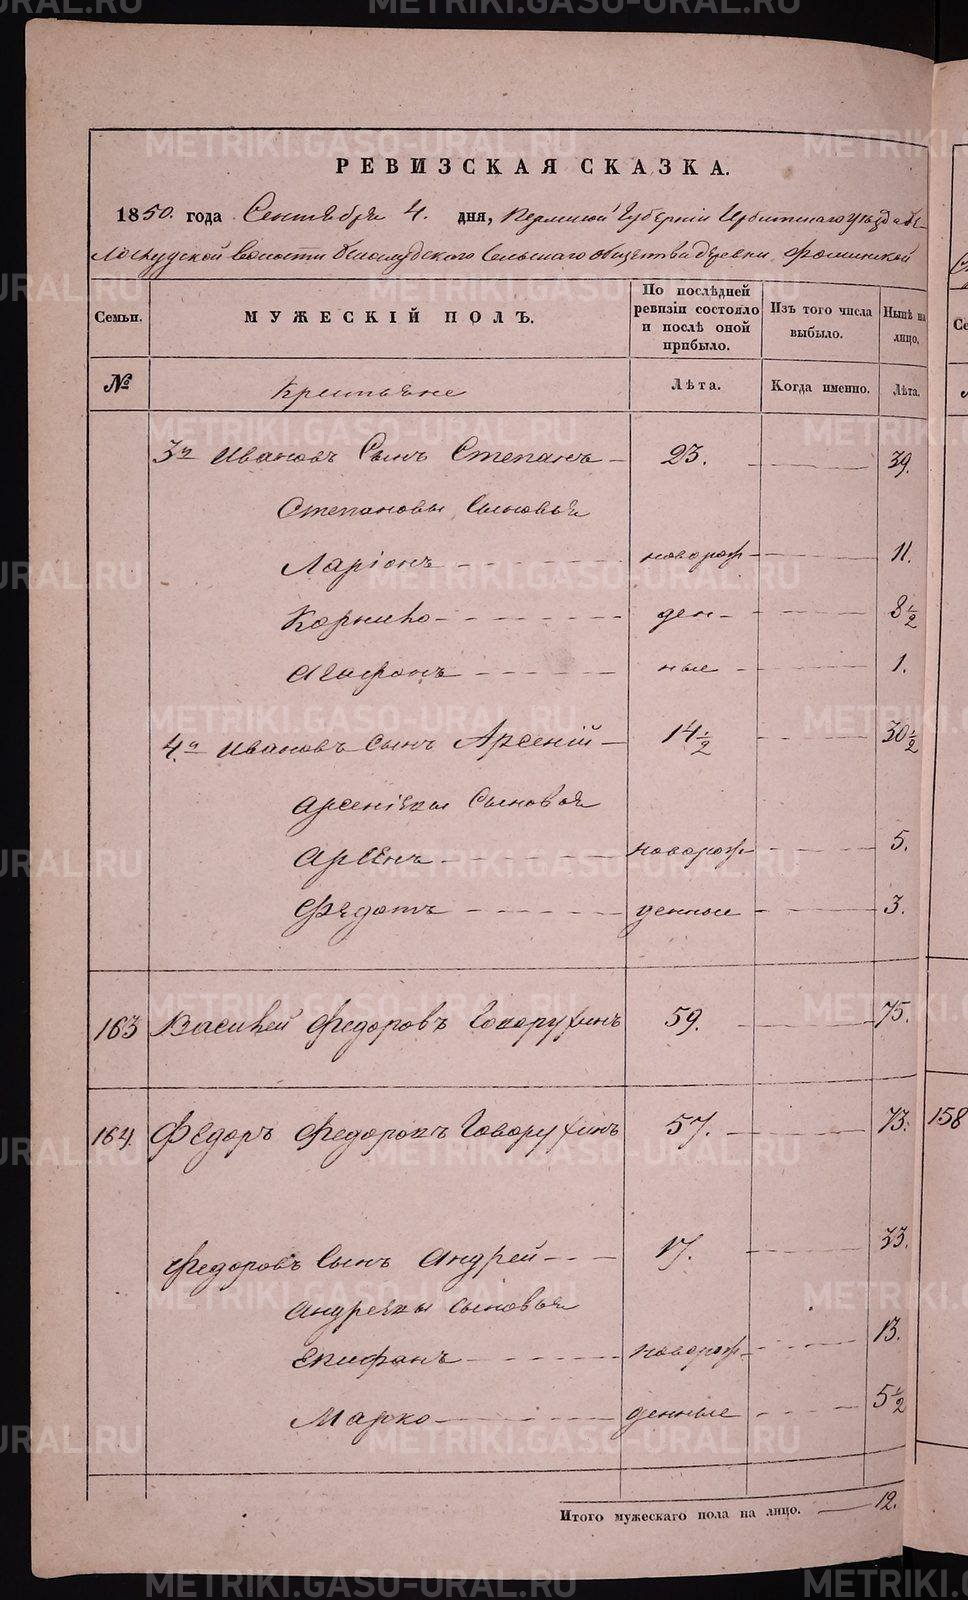 РЕВИЗСКАЯ СКАЗКА.
1850. года Сентября 4. дня, Пермской Губерніи Ирбитскаго уѣзда Бе-
лослудской волости Белослудского Сельскаго общества деревни Фоминской
Семьи.
МУЖЕСКІЙ ПОЛЪ.
По послѣдней ревизіи состояло и послѣ оной прибыло.
Изъ того числа выбыло.
Нынѣ на лицо.
№
Крестьяне
Лѣта.
Когда именно.
Лѣта.
3й Ивановъ Сынъ Степанъ 23. 39.
Степановы Сыновья
Ларіонъ новорож 11.
Корнило ден- 8 1/2
Агафонъ ные 1.
4й Ивановъ Сынъ Арсеній 14 1/2 30 1/2
Арсенiевы Сыновья
Арсенъ новорож 5.
Федотъ денные 3.
163 Василей Федоровъ Говорухинъ 59. 75.
164. Федоръ Федоровъ Говорухинъ 57. 73.
Федоровъ Сынъ Андрей 17. 33.
Андреевы Сыновья
Епифанъ новорож 13.
Марко денные 5 1/2
Итого мужескаго пола на лицо. 12.
158
METRIKI.GASO-URAL.RU